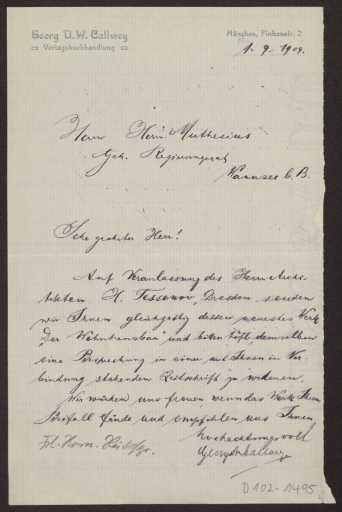 Georg D. W. Callwey
Verlagsbuchhandlung
München, Finkenstr. 2
1. 9. 1909.
Herrn Herm. Muthesius
Geh. Regierungsrat
Wannsee b. B.
Sehr geehrter Herr!
Auf Veranlassung des Herrn Archi-
tekten H. Tessenow, Dresden senden
wir Ihnen gleichzeitig dessen neuestes Werk
"Der Wohnhausbau" und bitten höfl. demselben
eine Besprechung in einer mit Ihnen in Ver
bindung stehenden Zeitschrift zu widmen.
Wir würden uns freuen wenn das Werk Ihren
Beifall fände und empfehlen uns Ihnen
Hochachtungsvoll
Georg D W Callwey
D 102-1495